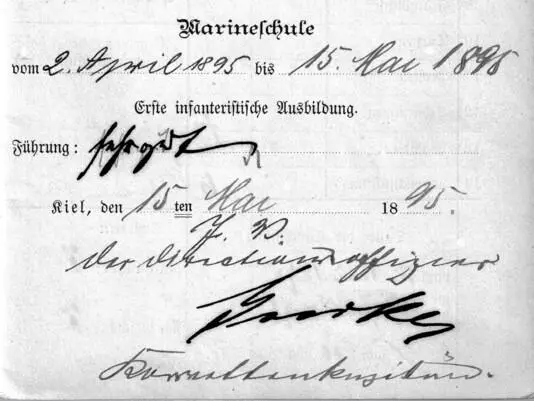 Marineschule
vom 2. April 1895 bis 15. Mai 1895
Erste infanteristische Ausbildung.
Führung: sehr gut
Kiel, den 15ten Mai 1895.
I. V.
Der Directionsoffizier
Korvettenkapitän.